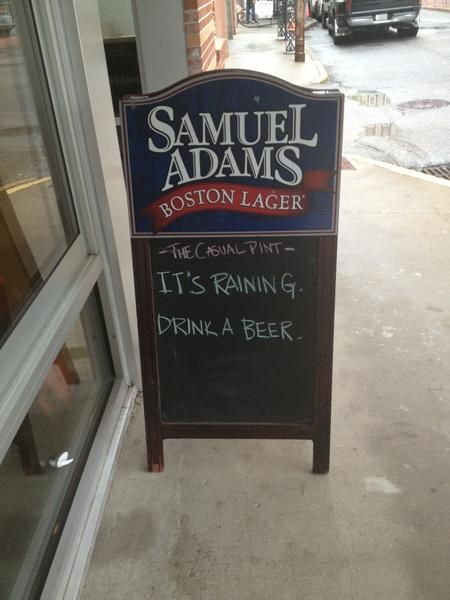 SAMUEL
ADAMS
BOSTON LAGER
-THE CASUAL PINT-
IT'S RAINING.
DRINK A BEER.